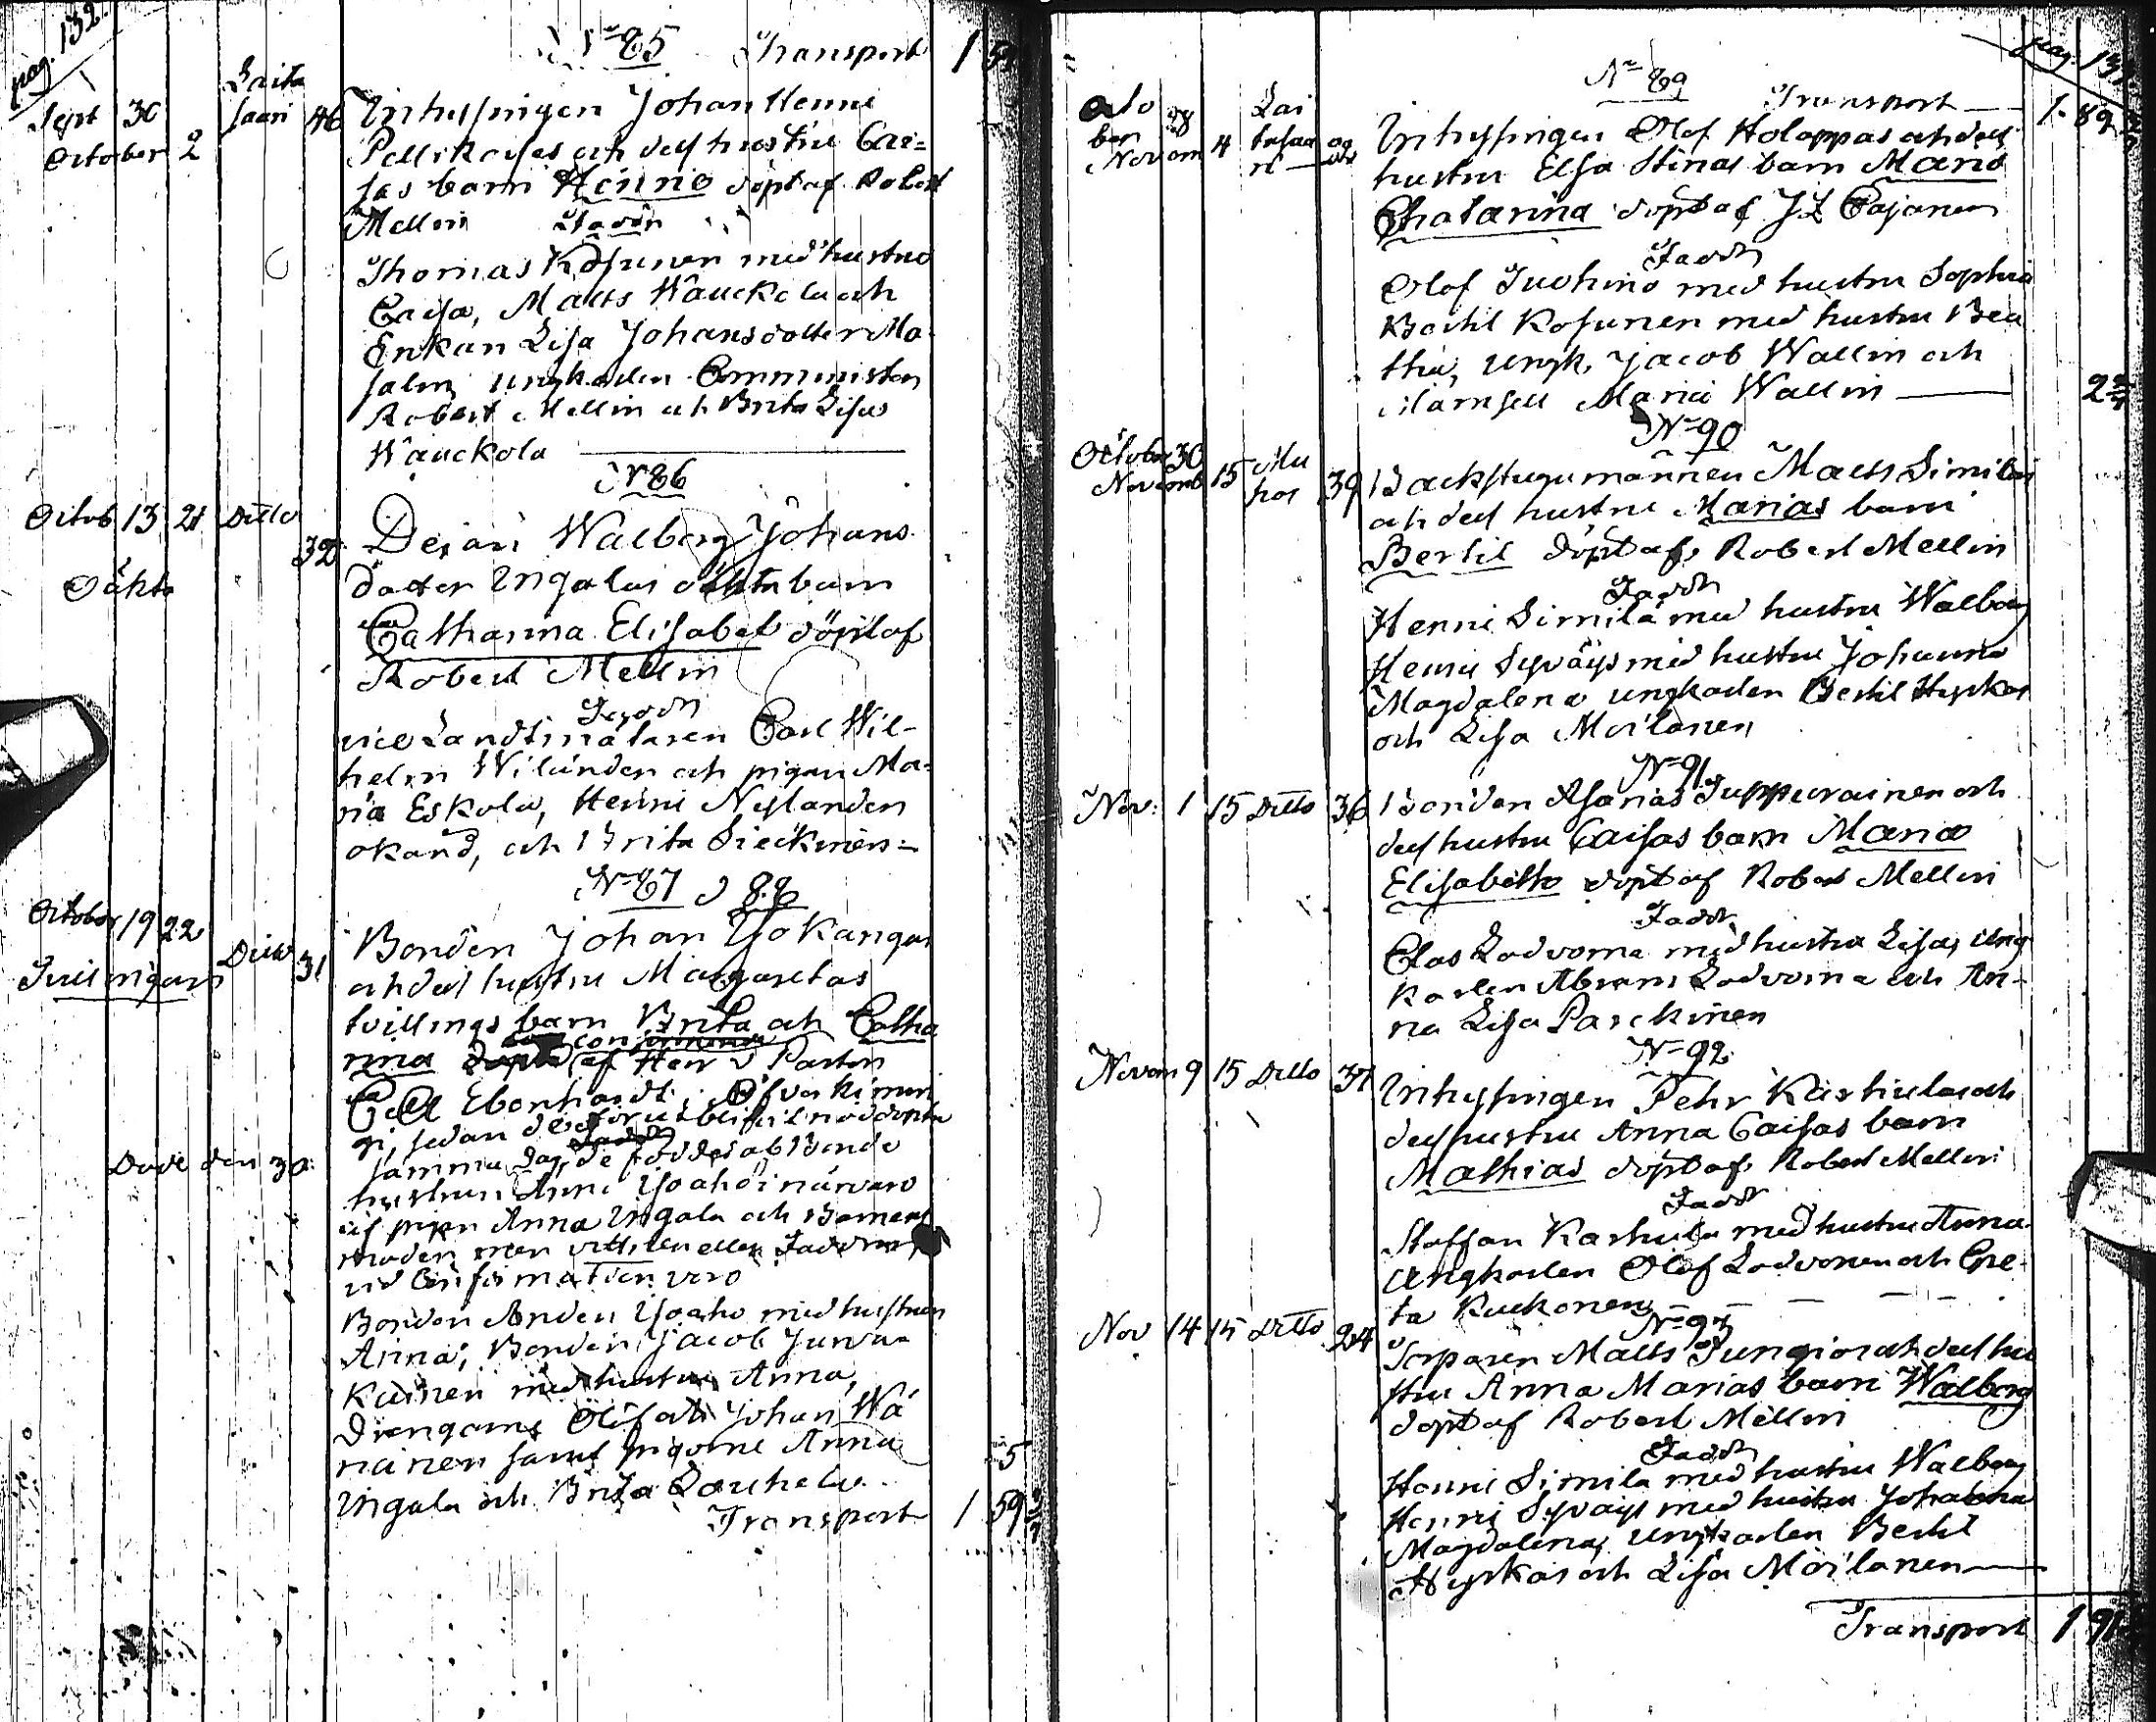 pag. 132.
No 85 Transport 1
Sept 30
October 2
Laita
saari 46
Inhysingen Johan Henric
Pellikases och dess hustru Cai=
sas barn Henric döpt af Robert
Mellin Faddr
Thomas Kosunen med hustru
Caisa, Matts Wäuckola och
Enkan Lisa Johansdotter Mo-
salm, ungkarlen Comministern
Robert Mellin och Brita Lisa
Wäuckola
No 86
Octob 13 21 Ditto
32
Oäkta
Dejan Walborg Johans
dotter Ingalas oäkta barn
Catharina Elisabet döpt af
Robert Mellin
Faddr
vice Landtmätaren Carl Wil-
helm Wilander och pigan Ma-
ria Eskola, Henric Nylander
okänd, och Brita Sieckinen
No 87 & 88
October 19 22 Ditto 31
Tvillingar
Bonden Johan Jokangas
och dess hustru Margaretas
tvillings barn Brita och Catha
rina af Herr Pastor
C A Eberhardt, Öfverkimin
gi, sedan de förut blifvit nöddöpta
samma dag, de föddes af Bonde
Döde den 30.
hustrun Anna Joaho i närvaro
af pigan Anna Ingala och Barnens
moder, men vittnen eller Faddrar
vid Confirmation voro
Bonden Anders Joaho med hustrun
Anna, Bonden Jacob Jurva-
kainen med hustru Anna,
Drengarne Olof och Johan Wä
nänen samt pigorne Anna
Ingala och Brita Laurhela 5
Transport 1 59
pag. 13
No 89
Transport 1. 89
Octo
ber 28
Novem 4
Lai
tasaa
ri
Inhysingen Olof Holappas och dess
hustru Elsa Stinas barn Maria
Chatarina döpt af J F Cajanen
Faddr
Olof Juohino med hustru Sophia
Bertil Kosunen med hustru Bea
tha, Ungk. Jacob Wallin och
Mamsell Maria Wallin 2
No 90
October 30
Novemb 15 Mu
hos 39
Backstugumannen Matts Similas
och dess hustru Marias barn
Bertil döpt af Robert Mellin
Faddr
Henric Similä med hustru Walborg
Henric Syväys med hustru Johanna
Magdalena ungkarlen Bertil Hyrkas
och Lisa Moilanen
No 91
Nov: 1 15 Ditto 36
Bonden Asarias Juppurainen och
dess hustru Caisas barn Maria
Elisabeth döpt af Robert Mellin
Faddr
Clas Lodvorna med hustru Lisa, Ung
karlen Abram Lodvorna och An-
na Lisa Parckinen
No 92
Novem 9 15 Ditto 37
Inhysingen Pehr Karhulas och
dess hustru Anna Caisas barn
Mathias döpt af Robert Mellin
Faddr
Staffan Karhula med hustru Anna
Ungkarlen Olof Lodvonen och Gre-
ta Ruckonen
No 93
Nov 14 15 Ditto 24
Torparen Matts Jungior och dess hu
stru Anna Marias barn Walborg
döpt af Robert Mellin
Faddr
Henric Similä med hustru Walborg
Henric Syväys med hustru Johanna
Magdalena, ungkarlen Bertil
Hyrkas och Lisa Moilanen
Transport 1 91